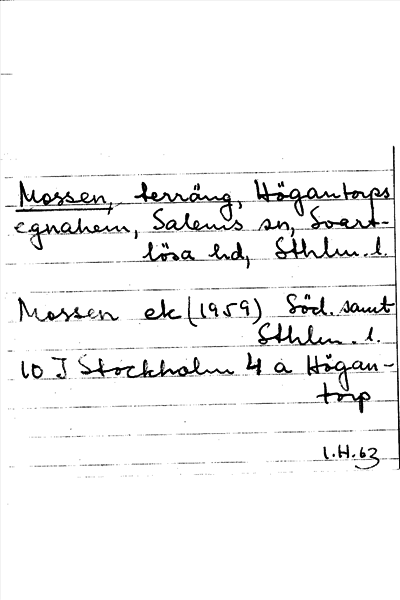 Mossen, terräng, Högantorps
egnahem, Salems sn, Svart-
lösa hd, Sthlm. l.
Mossen ek (1959) Söd. samt
Sthlm. l.
10 I Stockholm 4 a Högan-
torp
I.H.63